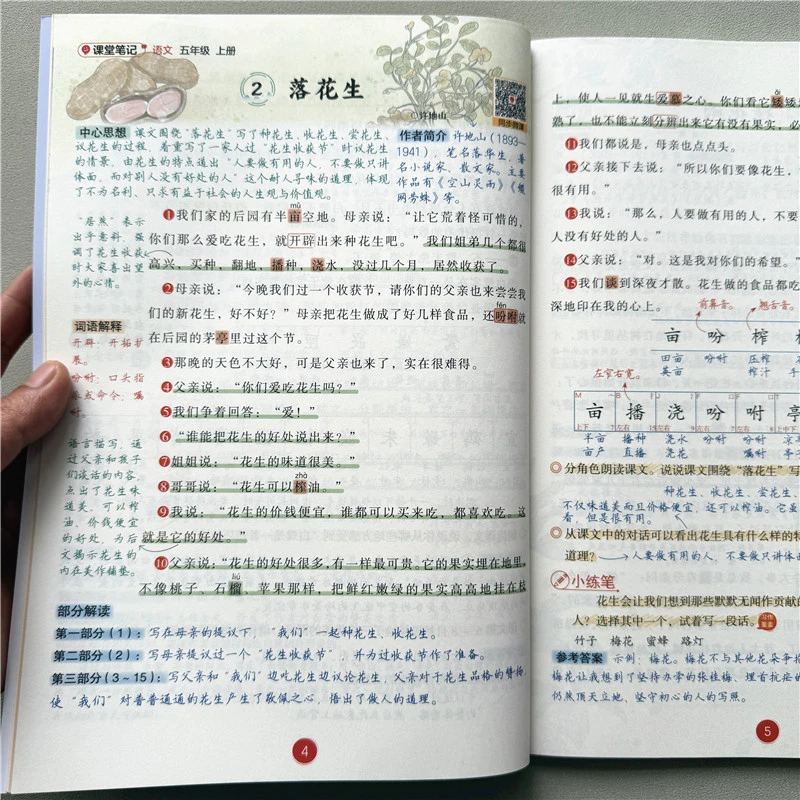 课堂笔记 语文 五年级 上册
2 落花生
◎许地山
同步微课
中心思想 课文围绕“落花生”写了种花生、收花生、尝花生、
议花生的过程,着重写了一家人过“花生收获节”时议花生
的情景,由花生的特点道出“人要做有用的人,不要做只讲
体面,而对别人没有好处的人”这个耐人寻味的道理,体现
了不为名利、只求有益于社会的人生观与价值观。
作者简介 许地山(1893—
1941),笔名落华生,著
名小说家、散文家。主要
作品有《空山灵雨》《缀
网劳蛛》等。
“居然”表示
出乎意料,强
调了花生收获
时大家喜出望
外的心情。
词语解释
开辟:开拓扩
展。
吩咐:口头指
派或命令;嘱
咐。
语言描写,通
过父亲和孩子
们谈话的内容,
点出了花生味
道美、可以榨
油、价钱便宜
的好处,为后
文揭示花生的
内在美作铺垫。
mǔ
❶我们家的后园有半亩空地。母亲说:“让它荒着怪可惜的,
你们那么爱吃花生,就开辟出来种花生吧。”我们姐弟几个都很
高兴,买种,翻地,播种,浇水,没过几个月,居然收获了。
❷母亲说:“今晚我们过一个收获节,请你们的父亲也来尝尝我
fēn
们的新花生,好不好?”母亲把花生做成了好几样食品,还吩咐就
在后园的茅亭里过这个节。
❸那晚的天色不大好,可是父亲也来了,实在很难得。
❹父亲说:“你们爱吃花生吗?”
❺我们争着回答:“爱!”
❻“谁能把花生的好处说出来?”
❼姐姐说:“花生的味道很美。”
zhà
❽哥哥说:“花生可以榨油。”
❾我说:“花生的价钱便宜,谁都可以买来吃,都喜欢吃。这
就是它的好处。”
❿父亲说:“花生的好处很多,有一样最可贵。它的果实埋在地里,
liú
不像桃子、石榴、苹果那样,把鲜红嫩绿的果实高高地挂在枝
部分解读
第一部分(1):写在母亲的提议下,“我们”一起种花生、收花生。
第二部分(2):写母亲提议过一个“花生收获节”,并为过收获节作了准备。
第三部分(3~15):写父亲和“我们”边吃花生边议论花生,父亲对于花生品格的赞扬,
使“我们”对普普通通的花生产生了敬佩之心,悟出了做人的道理。
4
上,使人一见就生爱慕之心。你们看它矮矮
熟了,也不能立刻分辨出来它有没有果实,必
⓫我们都说是,母亲也点点头。
⓬父亲接下去说:“所以你们要像花生,
很有用。”
⓭我说:“那么,人要做有用的人,不要
人没有好处的人。”
⓮父亲说:“对。这是我对你们的希望。”
⓯我们谈到深夜才散。花生做的食品都吃
深地印在我的心上。
前鼻音。 翘舌音。
亩 吩 榨
田亩 吩咐 压榨
英亩 榨汁
左窄右宽。
亩 播 浇 吩 咐 亭
上下 左右 左右 左右 左右 上下
半亩 播种 浇水 吩咐 吩咐
亩产 直播 浇花 嘱咐
分角色朗读课文,说说课文围绕“落花生”写
种花生、收花生、尝花生、
不仅味道美而且价格便宜,还可以榨油。它虽
看,但是很有用。
从课文中的对话可以看出花生具有什么样的特
道理? 人要做有用的人,不要做只讲体面
小练笔
花生会让我们想到那些默默无闻作贡献的
人?选择其中一个,试着写一段话。
竹子 梅花 蜜蜂 路灯
参考答案 示例:梅花。梅花不与其他花朵争
梅花让我想到了坚持办学的张桂梅、埋首抗疫的
仍然顶天立地、坚守初心的人的写照。
5